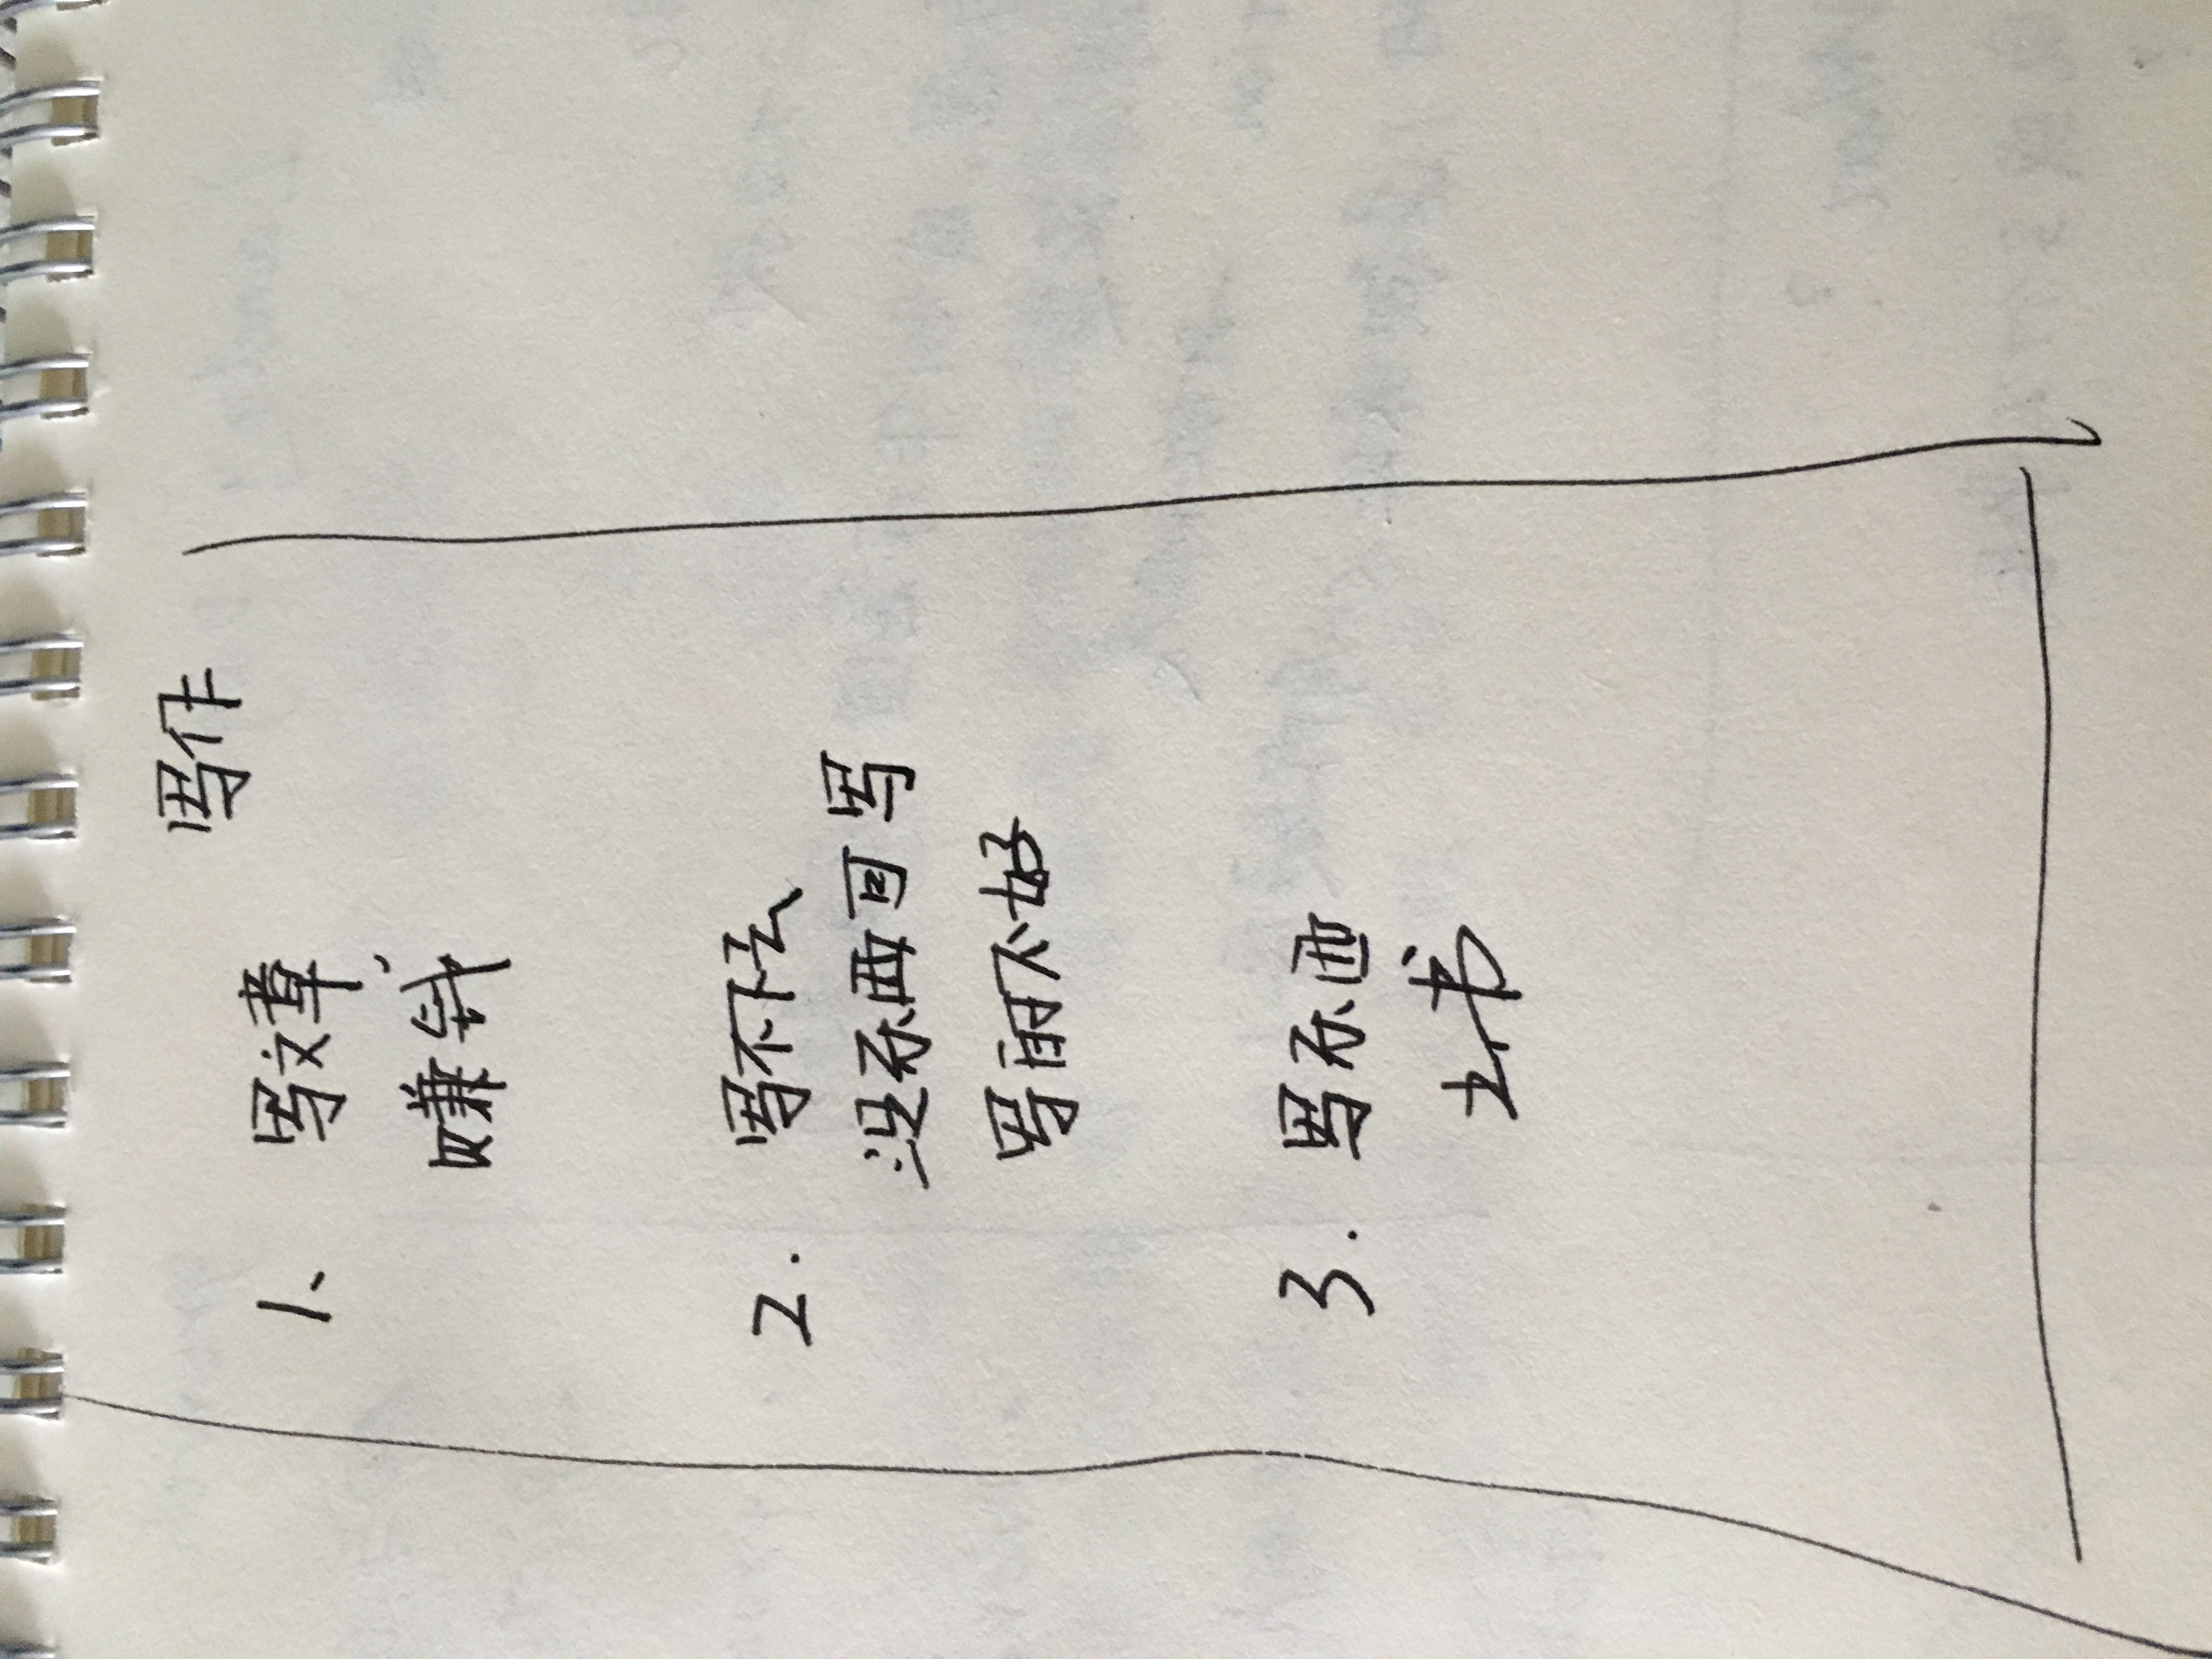 写作
1、 写文章
赚钱
2. 写不下去
没东西可写
写的不好
3. 写东西
出书